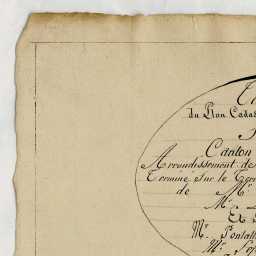 du Plan Cadas
Canton
Arrondissement de
Terminé sur le Terr
de M.
M.
Et
Mr. Pontall
Mr.